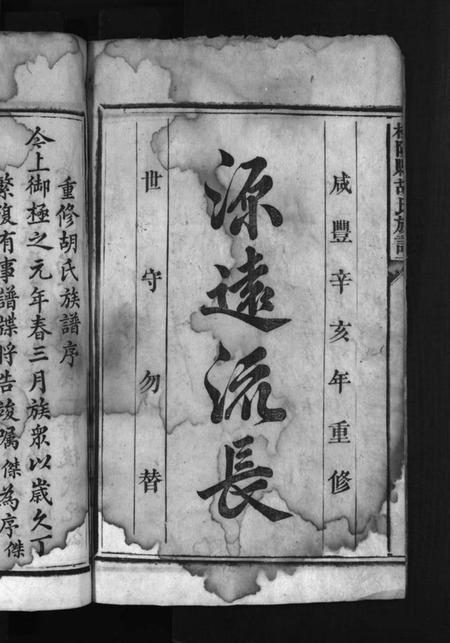 胡氏族譜
咸豐辛亥年重修
源遠流長
世守勿替
重修胡氏族譜序
今上御極之元年春三月族衆以歲久丁
繁復有事譜牒將告竣囑傑為序傑